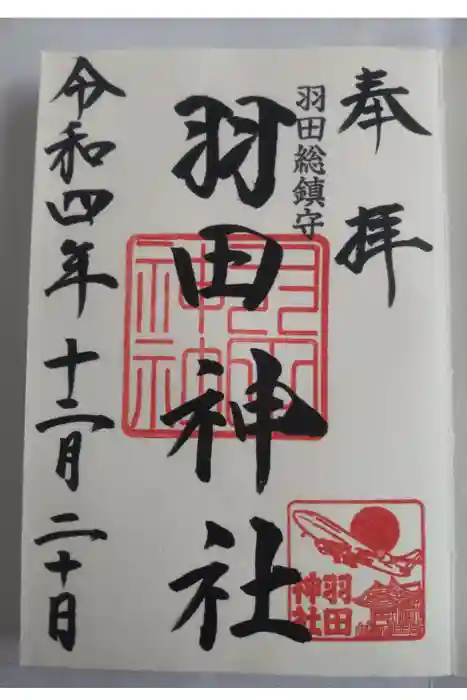 奉拝
羽田総鎮守
羽田神社
令和四年十二月二十日
羽田
神社